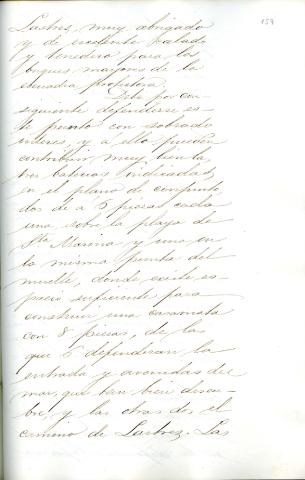 159
Lastres, muy abrigado
y de excelente calado
y tenedero para los
buques mayores de la
escuadra protectora.
Debe por con-
siguiente defenderse es-
te punto con sobrado
interes, y á ello pueden
contribuir muy bien la
tres baterias indicadas
en el plano de conjunto
dos de á 5 piezas cada
una sobre la playa de
Sta Marina y una en
la misma punta del
muelle, donde existe es-
pacio suficiente para
construir una casamata
con 8 piezas, de las
que 6 defenderan la
entrada y avenidas del
mar, que tan bien descu-
bre, y las otras dos el
camino de Lastres. Las